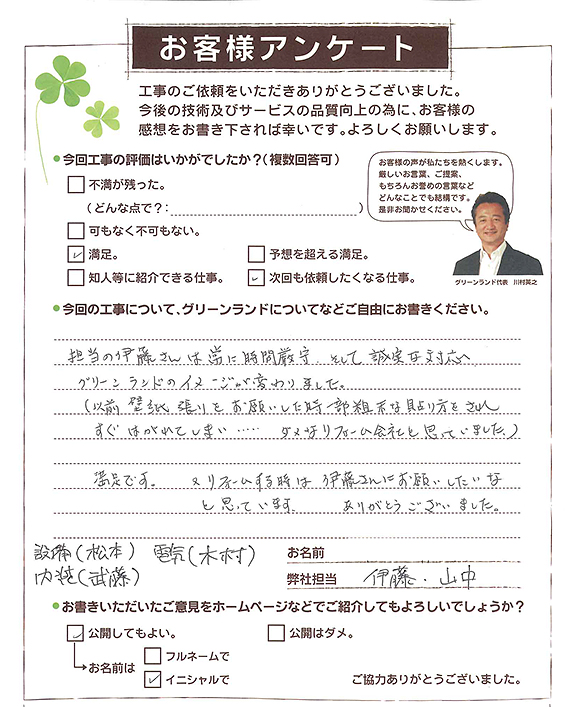 お客様アンケート
工事のご依頼をいただきありがとうございました。
今後の技術及びサービスの品質向上の為に、お客様の
感想をお書き下されば幸いです。よろしくお願いします。
● 今回工事の評価はいかがでしたか?(複数回答可)
不満が残った。
(どんな点で?: )
可もなく不可もない。
満足。
予想を超える満足。
知人等に紹介できる仕事。
次回も依頼したくなる仕事。
お客様の声が私たちを熱くします。
厳しいお言葉、ご提案、
もちろんお誉めの言葉など
どんなことでも結構です。
是非お聞かせください。
グリーンランド代表 川村英之
● 今回の工事について、グリーンランドについてなどご自由にお書きください。
担当の伊藤さんは常に時間厳守、そして誠実な対応へ
グリーンランドのイメージが変わりました。
(以前 壁紙張りをお願いした時一部粗末な貼り方をされ
すぐはがれてしまい…… ダメなリフォーム会社と思っていました。)
満足です。 又リフォームする時は伊藤さんにお願いしたいな
と思っています。 ありがとうございました。
設備(松本) 電気(木村)
内装(武藤)
お名前
弊社担当 伊藤・山中
● お書きいただいたご意見をホームページなどでご紹介してもよろしいでしょうか?
公開してもよい。
公開はダメ。
お名前は
フルネームで
イニシャルで
ご協力ありがとうございました。